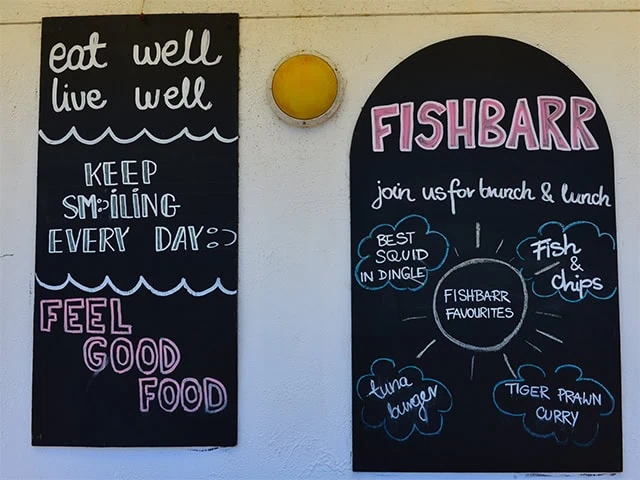 eat well
live well
KEEP
SM:)ILING
EVERY DAY:)
FEEL
GOOD
FOOD
FISHBARR
join us for brunch & lunch
BEST
SQUID
IN DINGLE
Fish
&
chips
FISHBARR
FAVOURITES
tuna
burger
TIGER PRAWN
CURRY